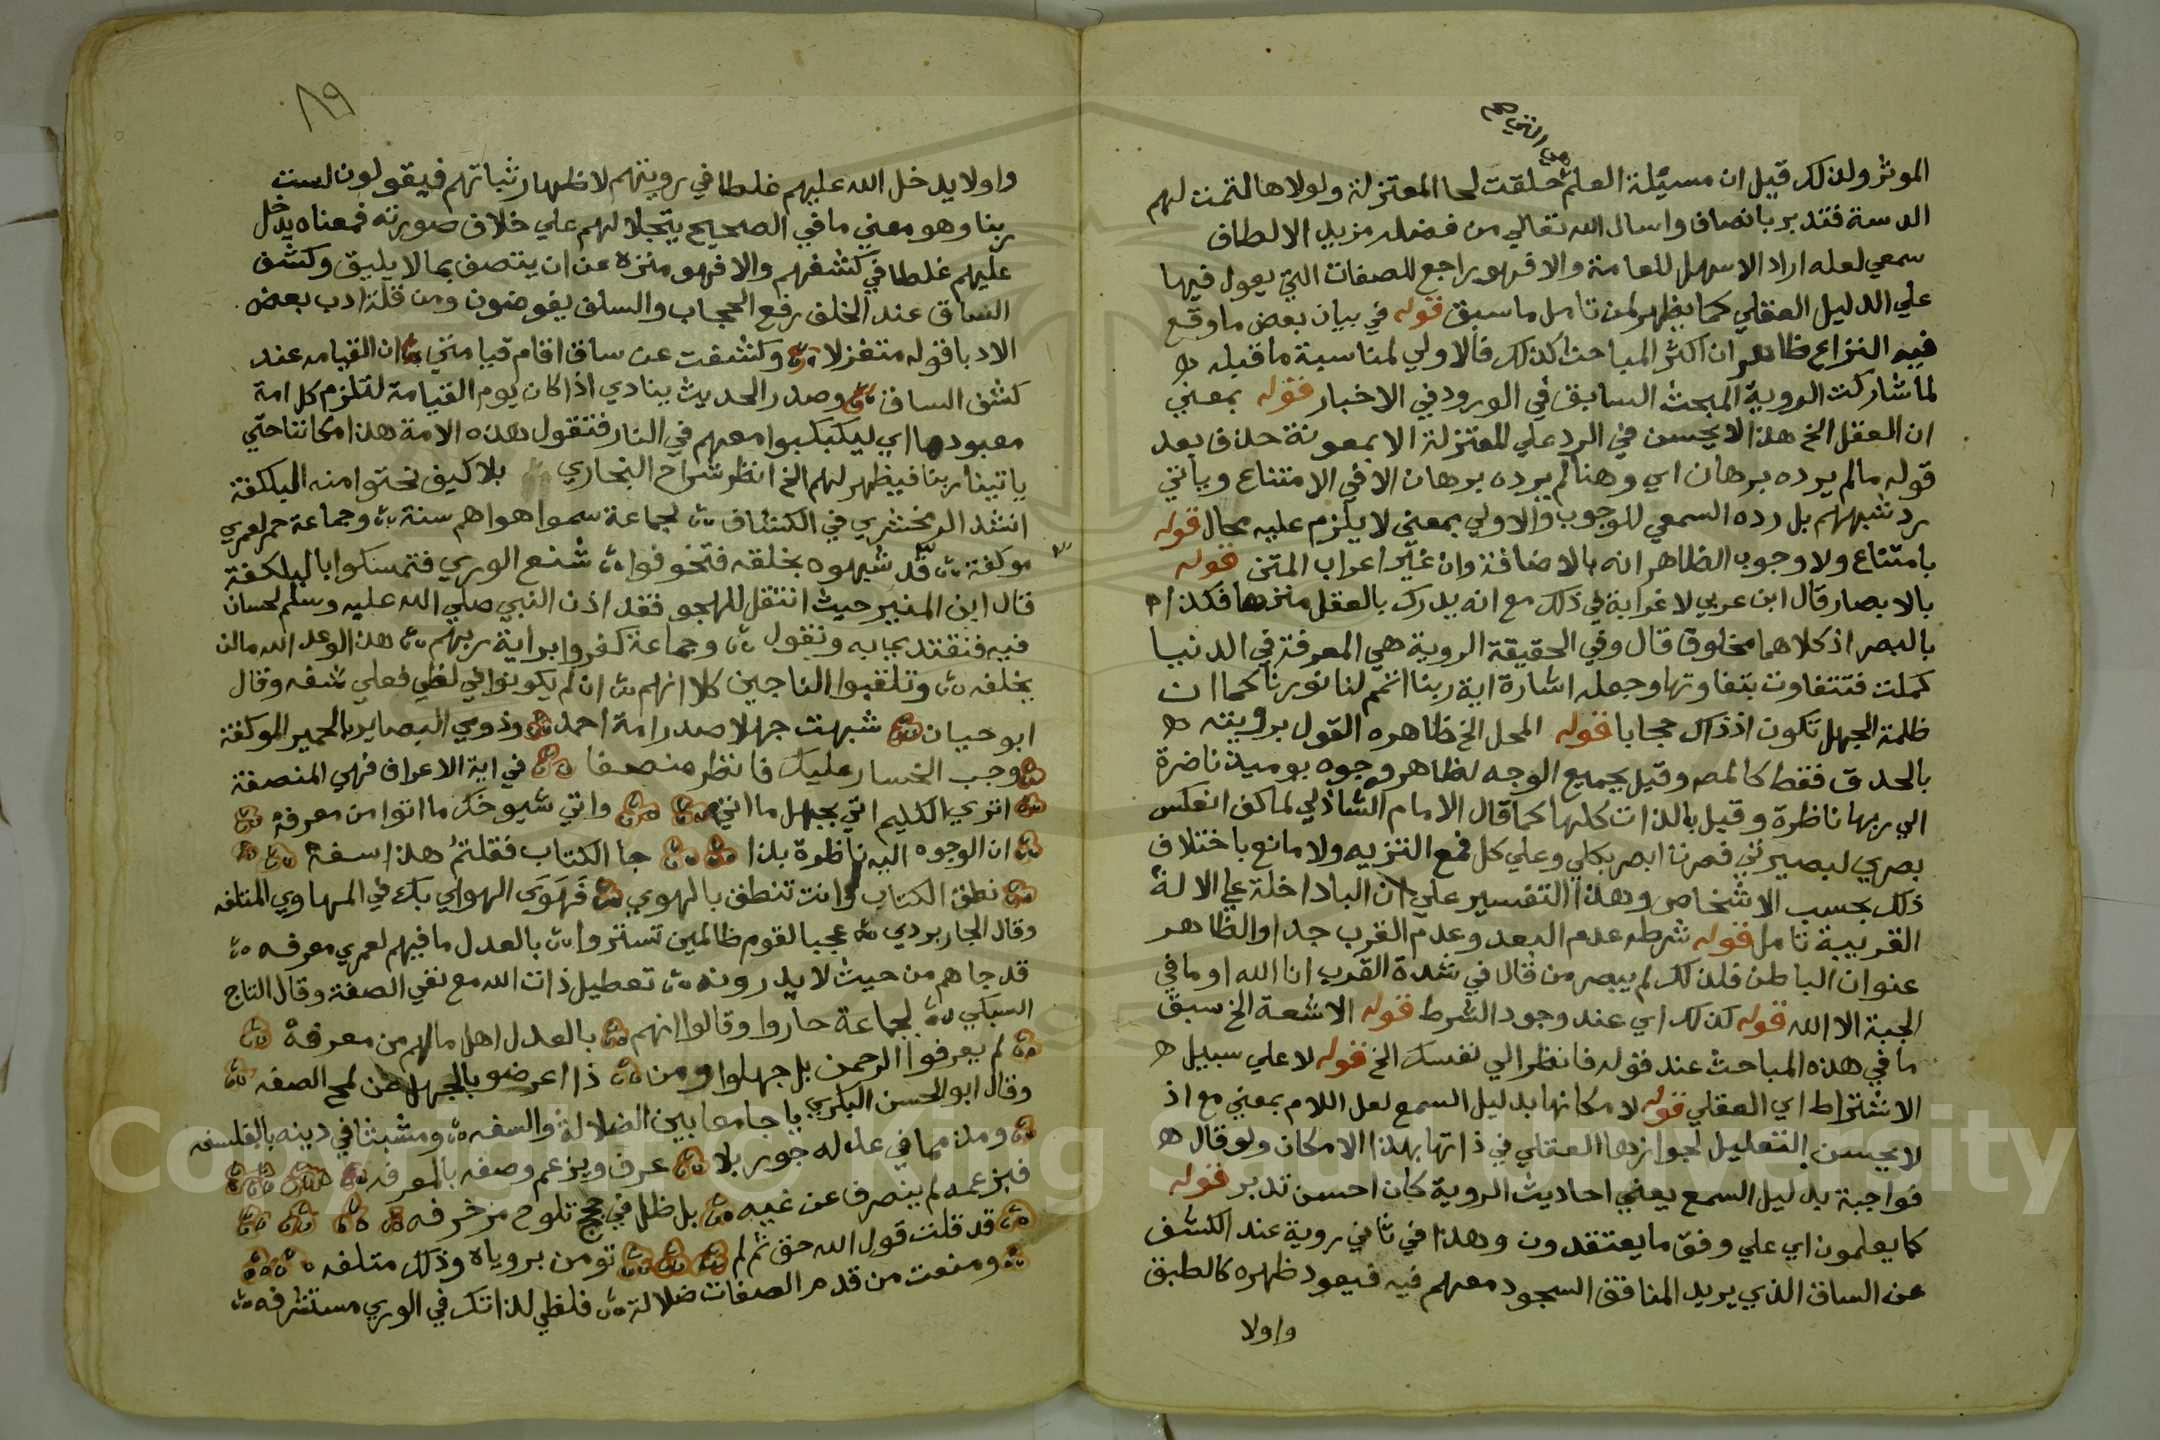 من التي هم
الموثر ولذلك قيل ان مسيئلة العلم حلقت لحا المعتزلة ولولاها لتمت لهم
الدسة فتدبر بانصاف واسال الله تعالي من فضله مزيد الالطاف
سمعي لعله اراد الاسهل للعامة والا فهو راجع للصفات التي يعول فيها
علي الدليل العقلي كما يظهر لمن تامل ما سبق قوله في بيان بعض ما وقع
فيه النزاع ظاهر ان اكثر المباحث كذلك فالاولي لمناسبة ما قبله
لما شاركت الروية المبحث السابق في الورود في الاخبار قوله بمعني
ان العقل الخ هذا لا يحسن في الرد علي المعتزلة الا بمعونة حذف بعد
قوله مالم يرده برهان اي وهنا لم يرده برهان الا في الامتناع وياتي
رد شبههم بل رده السمعي للوجوب والاولي بمعني لا يلزم عليه محال قوله
بامتناع ولا وجوب الظاهر انه بالاضافة وان غير اعراب المتن قوله
بالابصار قال ابن عربي لا غرابة في ذلك مع انه يدرك بالعقل منزها فكذا
بالبصر اذ كلاهما مخلوق قال وفي الحقيقة الروية هي المعرفة في الدنيا
كملت فتتفاوت بتفاوتها وجعله اشارة اية ربنا اتمم لنا نورنا كما ان
ظلمة الجهل تكون اذ ذاك حجابا قوله المحل الخ ظاهره القول برويته
بالحدق فقط كالمص وقيل بجميع الوجه لظاهر وجوه يوميذ ناضرة
الي ربها ناظرة وقيل بالذات كلها كما قال الامام الشاذلي لما كف انعكس
بصري لبصيرتي فصرت ابصر بكلي وعلي كل فمع التنزيه ولا مانع باختلاف
ذلك بحسب الاشخاص وهذا التفسير علي ان البا داخلة علي الالة
القريبة تامل قوله شرطه عدم البعد وعدم القرب جدا والظاهر
عنوان الباطن فلذلك لم يبصر من قال في شدة القرب انا الله او ما في
الجبة الا الله قوله كذلك اي عند وجود الشرط قوله الاشعة الخ سبق
ما في هذه المباحث عند قوله فانظر الي نفسك الخ قوله لا علي سبيل
الاشتراط اي العقلي قوله لامكانها بدليل السمع لعل اللام بمعني مع اذ
لا يحسن التعليل لجوازها العقلي في ذاتها بهذا الامكان ولو قال
فواجبة بدليل السمع يعني احاديث الروية كان احسن تدبر قوله
كما يعلمون اي علي وفق ما يعتقدون وهذا في ثاني روية عند الكشف
عن الساق الذي يريد المنافق السجود معهم فيه فيعود ظهره كالطبق
واولا
٨٩
واولا يدخل الله عليهم غلطا في رويتهم لاظهار ثباتهم فيقولون لست
ربنا وهو معني ما في الصحيح يتجلا لهم علي خلاف صورته فمعناه يدخل
عليهم غلطا في كشفهم والا فهو منزه عن ان يتصف بما لا يليق وكشف
الساق عند الخلف رفع الحجاب والسلف يفوضون ومن قلة ادب بعض
الادبا قوله متغزلا وكشفت عن ساق اقام قيامتي ان القيامه عند
كشف الساق وصدر الحديث ينادي اذا كان يوم القيامة لتلزم كل امة
معبودها اي ليكبكبوا معهم في النار فتقول هذه الامة هذا مكاننا حتي
ياتينا ربنا فيظهر لهم الخ انظر شراح البخاري بلا كيف نحتوا منه البلكفة
انشد الزمخشري في الكشاف لجماعة سموا هواهم سنة وجماعة حمر لعمري
موكفة قد شبهوه بخلقه فتخوفوا شنع الوري فتمسكوا بالبلكفة
قال ابن المنير حيث انتقل للهجو فقد اذن النبي صلي الله عليه وسلم لحسان
فيه فنقتد بجابه ونقول وجماعة كفروا براية ربهم هذا الوعد الله مالن
يخلفه وتلقبوا الناجين كلا انهم ان لم يكونوا في لظي فعلي شفه وقال
ابو حيان شبهت جهلا صدر امة احمد وذوي البصاير بالحمير الموكفة
وجب الخسار عليك فانظر منصفا في اية الاعراف فهي المنصفة
اتري الكليم اتي بجهل ما اتي واتي شيوخك ما اتوا من معرفه
ان الوجوه اليه ناظرة بذا جا الكتاب فقلتم هذا سفه
نطق الكتاب وانت تنطق بالهوي فهوي الهواي بك في المهاوي المتلفه
وقال الجاربردي عجبا لقوم ظالمين تستروا بالعدل ما فيهم لعمري معرفه
قد جاهم من حيث لا يدرونه تعطيل ذات الله مع نفي الصفة وقال التاج
السبكي لجماعة حاروا وقالوا انهم بالعدل اهل مالهم من معرفه
لم يعرفوا الرحمن بل جهلوا ومن ذا اعرضوا بالجهل عن لمح الصفه
وقال ابو الحسن البكري يا جامعا بين الضلالة والسفه ومشبثا في دينه بالفلسفه
ومذمما في عدله جور بلا عرف ويزعم وصفه بالمعرفه
فبزعمه لم ينصرف عن غيه بل ظل في حجج تلوح مزخرفه
قد قلت قول الله حق ثم لم تومن بروياه وذلك متلفه
ومنعت من قدم الصفات ضلالة فلظي لذاتك في الوري مستشرفه
Copyright © King Saud University